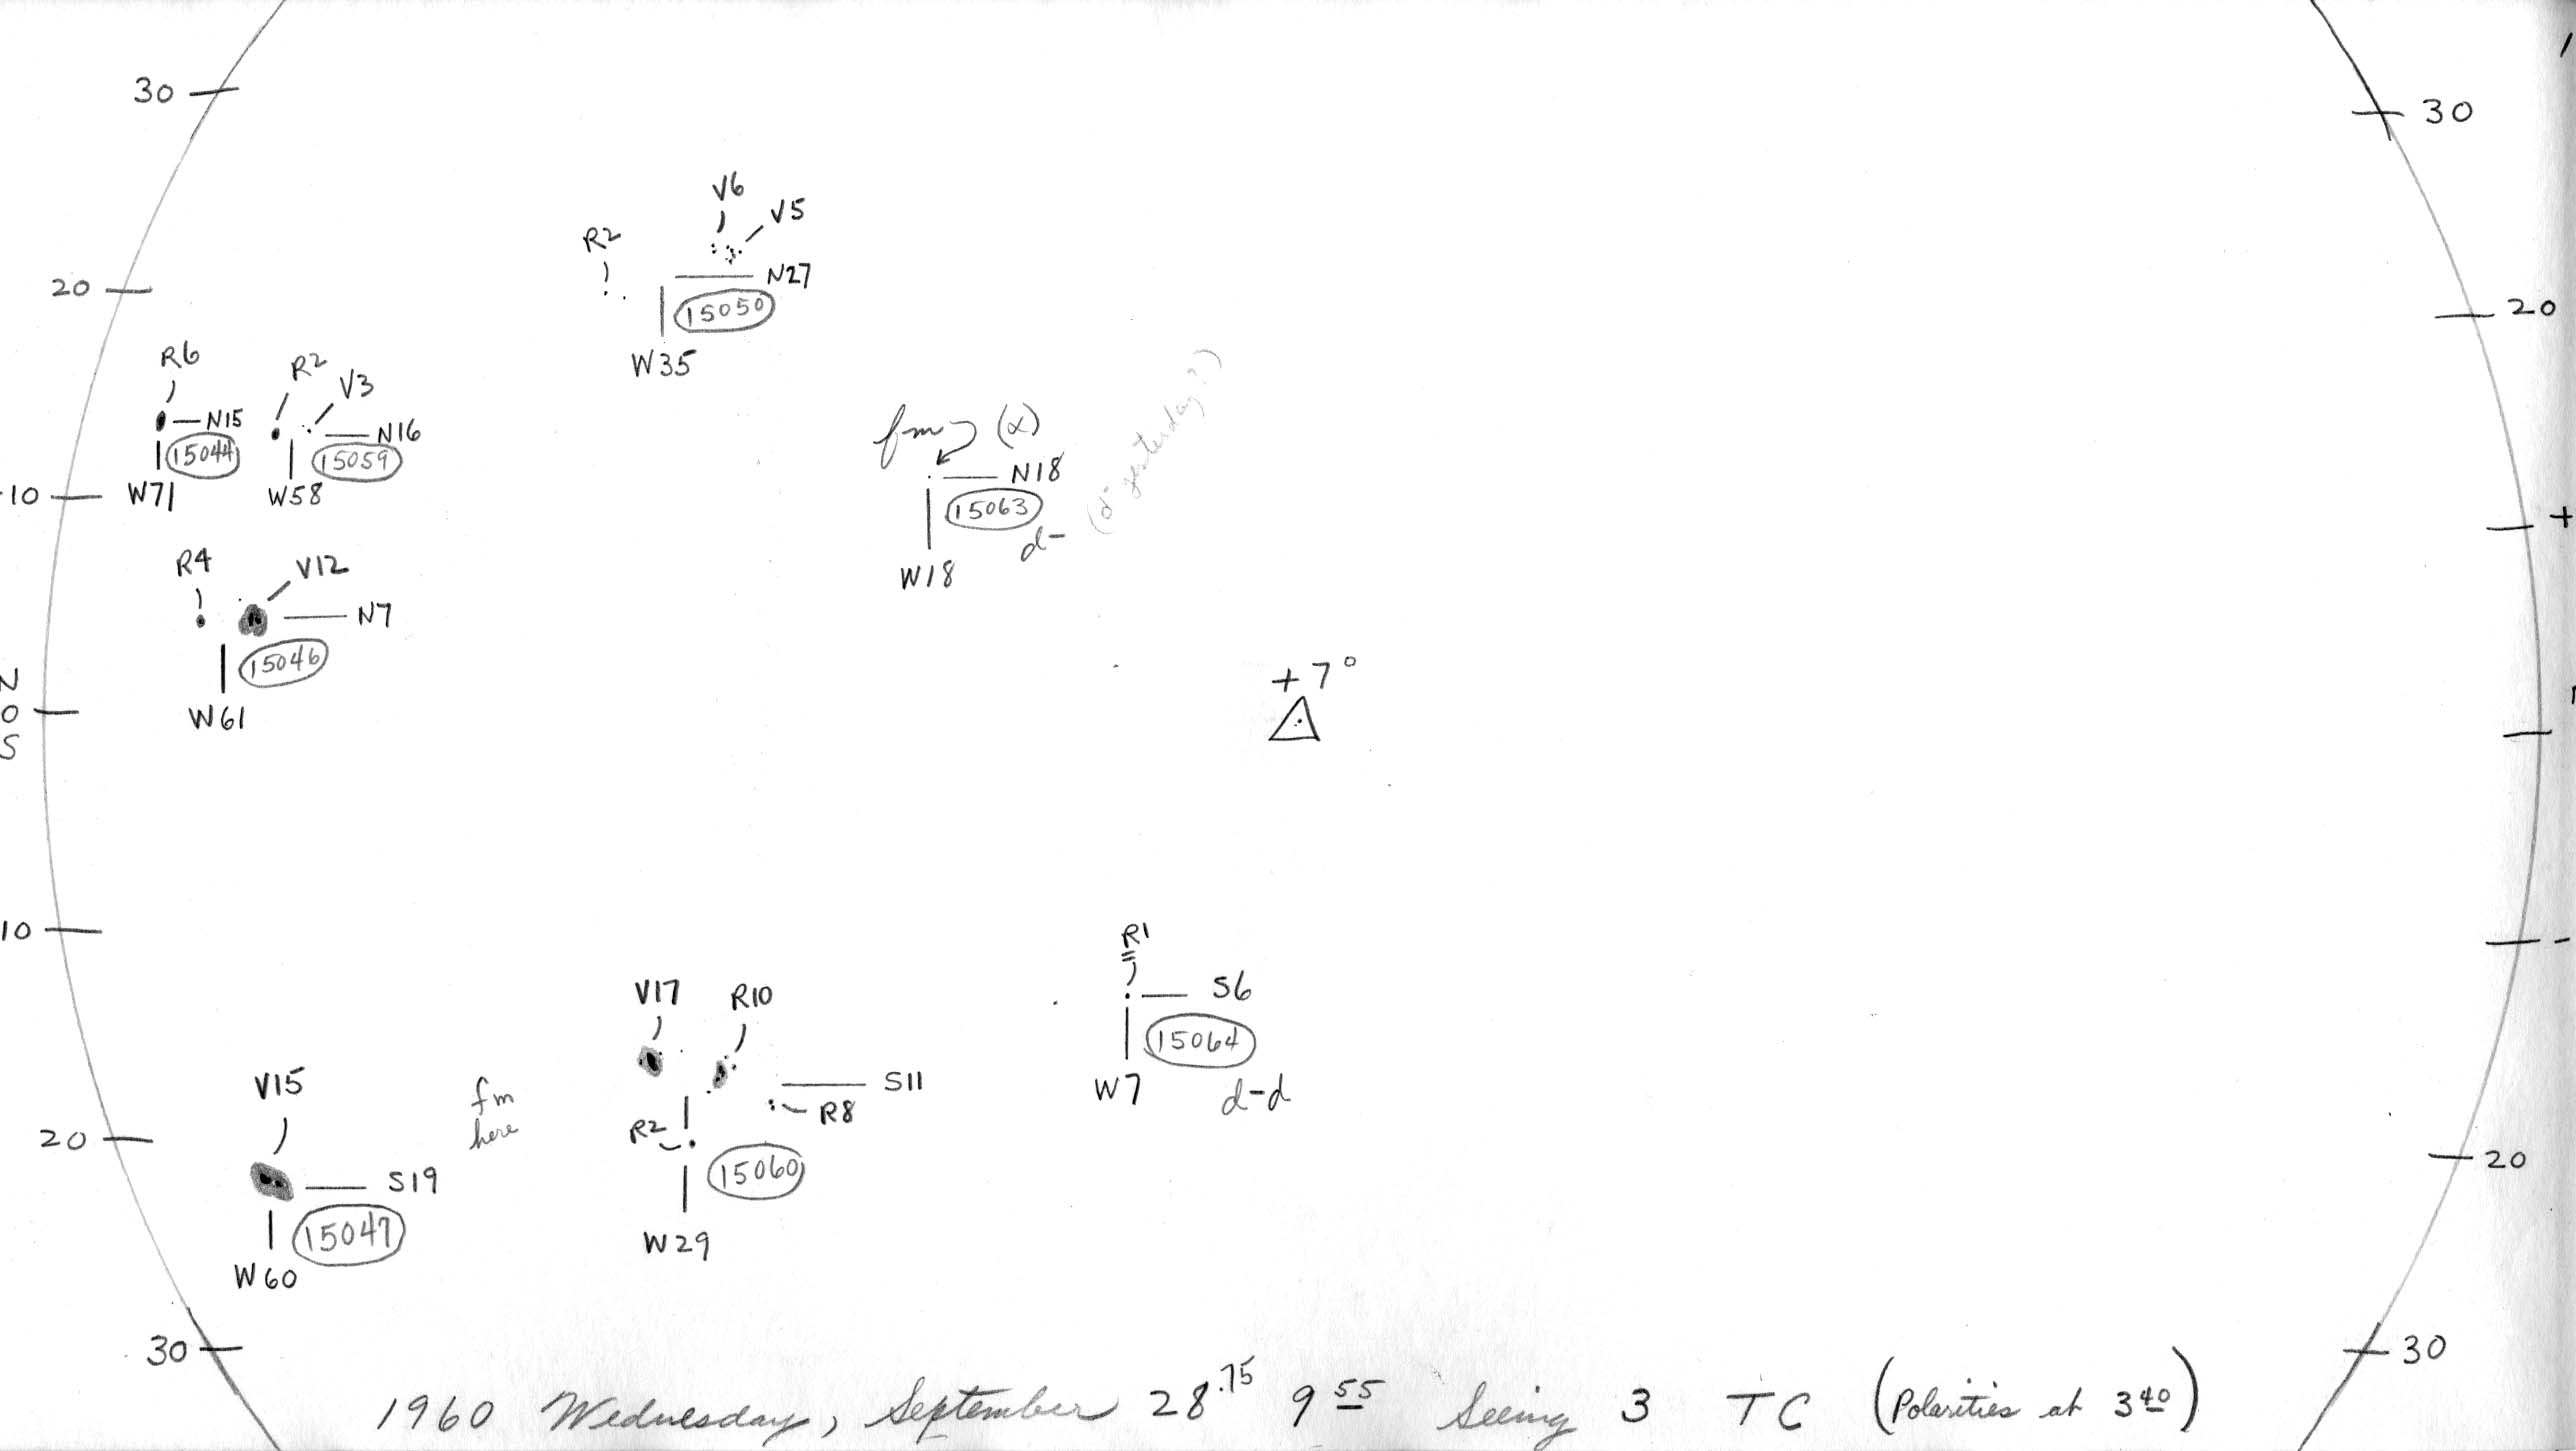 30
30
V6
V5
R2
N27
20
20
15050
W35
R6
R2
V3
N15
N16
15044
15059
10
W71
W58
fm (α)
(α yesterday?)
N18
15063
d-
W18
+
R4
V12
N7
15046
W61
N
0
S
+7°
10
R1
S6
15064
W7
d-d
-
V17
R10
S11
R8
R2
15060
W29
fm
here
V15
20
20
S19
15047
W60
30
30
1960 Wednesday, September 28.75 9 55 Seeing 3 TC (Polarities at 3 40)